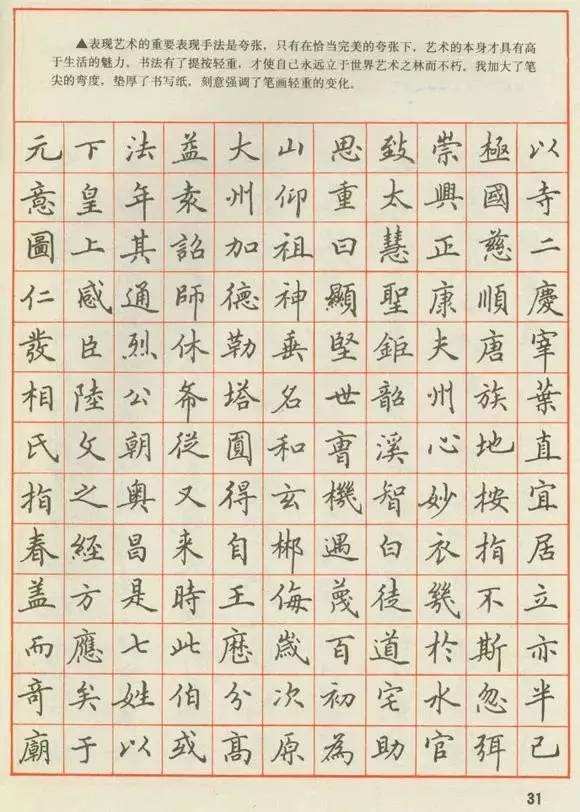 ▲表现艺术的重要表现手法是夸张，只有在恰当完美的夸张下，艺术的本身才具有高
于生活的魅力，书法有了提按轻重，才使自己永远立于世界艺术之林而不朽，我加大了笔
尖的弯度，垫厚了书写纸，刻意强调了笔画轻重的变化。
元下法益大山思致崇極以
意皇年表州仰重太興國寺
圖上其詔加祖曰慧正慈二
仁感通師德神顯聖康順慶
發臣烈休勒垂堅鉅夫唐宰
相陸公希塔名世韶州族葉
氏父朝從圓和曹溪心地直
指之奥又得玄機智妙按宜
春經昌来自郴遇白衣指居
盖方是時王侮蔑徒幾不立
而應七此歷歲百道於斯亦
奇矣姓伯分次初宅水忽半
廟于以或高原為助官弭已
31